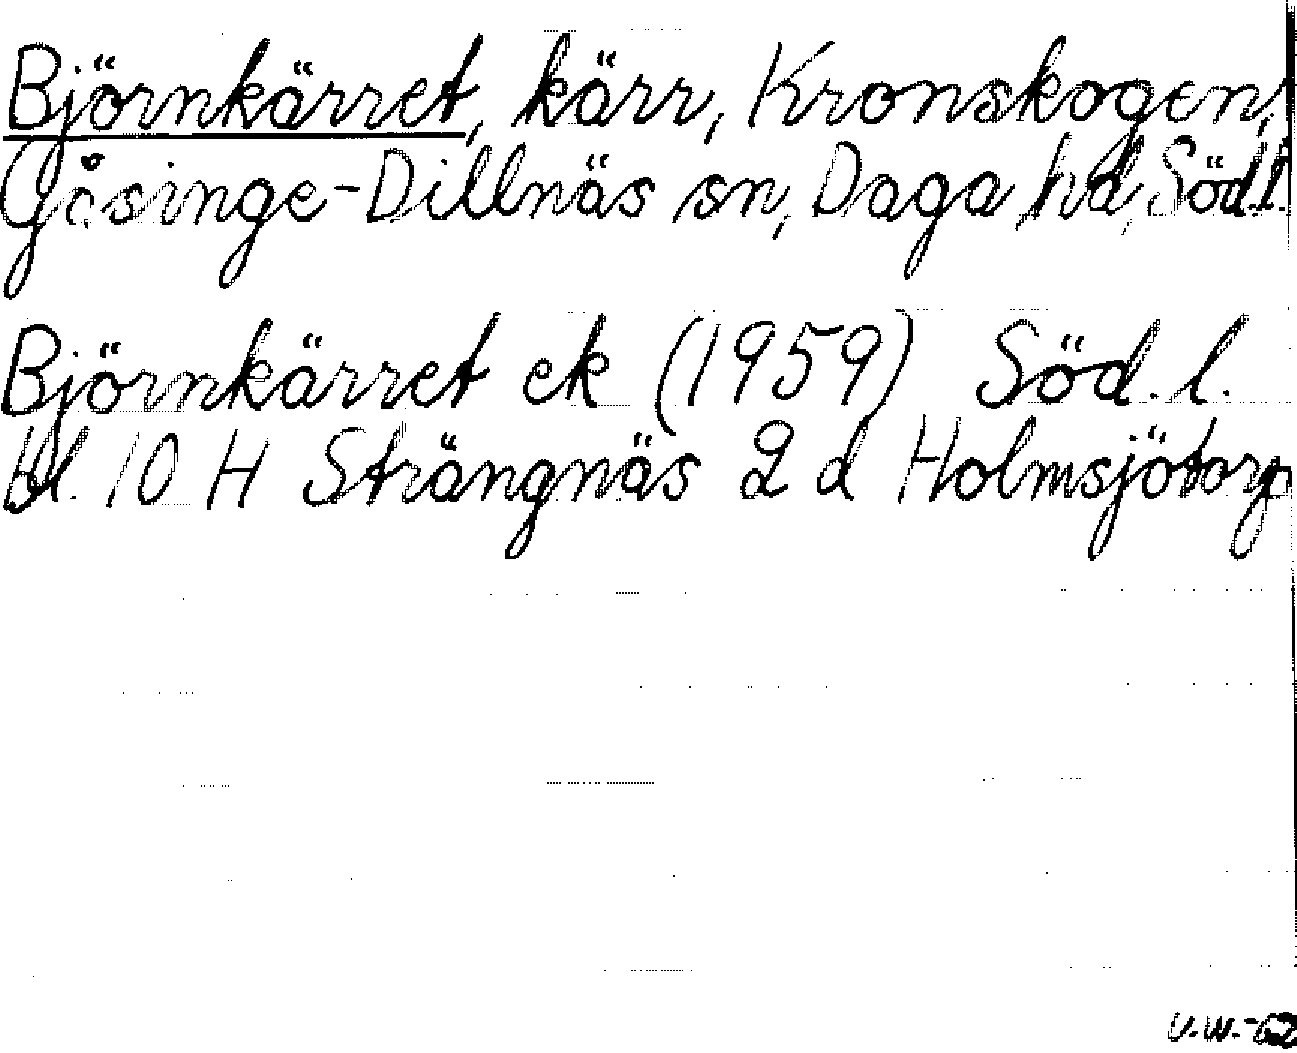 Björnkärret, kärr, Kronskogen,
Gåsinge-Dillnäs sn, Daga hd, Söd.l.
Björnkärret ek (1959) Söd. l.
bl. 10 H Strängnäs 2 d Holmsjötorp
V.W.-62